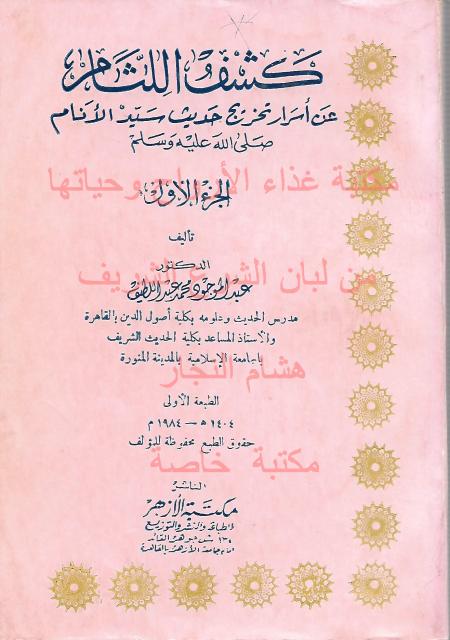 كشف اللثام
عن أسرار تخريج حديث سيد الأنام
صلى الله عليه وسلم
مكتبة غذاء الأرواح وحياتها
الجزء الأول
تأليف
الدكتور
من لبان الشرع الشريف
عبد الموجود محمد عبد اللطيف
مدرس الحديث وعلومه بكلية أصول الدين بالقاهرة
والأستاذ المساعد بكلية الحديث الشريف
بالجامعة الإسلامية بالمدينة المنورة
هشام النجار
الطبعة الأولى
١٤٠٤ ه — ١٩٨٤ م
حقوق الطبع محفوظة للمؤلف
مكتبة خاصة
الناشر
مكتبة الأزهر
للطباعة والنشر والتوزيع
١٣٥ ش جوهر القائد
أمام جامعة الأزهر بالقاهرة